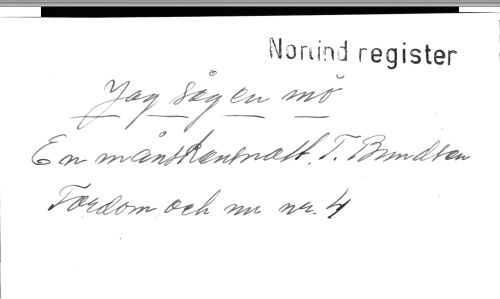 Norlind register
Jag såg en mö
En månskensnatt. T. Bundsen
Fordom och nu nr. 4